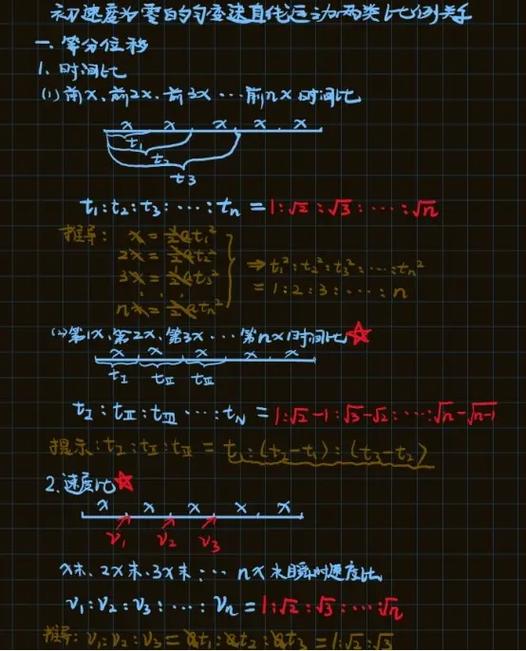 初速度为零的匀变速直线运动两类比例关系
一、等分位移
1. 时间比
(1) 前x、前2x、前3x … 前nx时间比
x x x x x
t₁
t₂
t₃
t₁:t₂:t₃:⋯:tₙ = 1:√2:√3:⋯:√n
推导: x = ½at₁²
2x = ½at₂²
3x = ½at₃²
nx = ½atₙ²
⇒ t₁²:t₂²:t₃²:⋯:tₙ²
= 1:2:3:⋯:n
(2) 第1x、第2x、第3x … 第nx时间比☆
x x x x x
tⅠ tⅡ tⅢ
tⅠ:tⅡ:tⅢ ⋯:t_N = 1:√2-1:√3-√2:⋯:√n-√n-1
提示: tⅠ:tⅡ:tⅢ = t₁:(t₂-t₁):(t₃-t₂)
2. 速度比☆
x x x x x
v₁ v₂ v₃
x末、2x末、3x末 … nx末瞬时速度比
v₁:v₂:v₃:⋯:vₙ = 1:√2:√3:⋯:√n
推导: v₁:v₂:v₃ = at₁:at₂:at₃ = 1:√2:√3